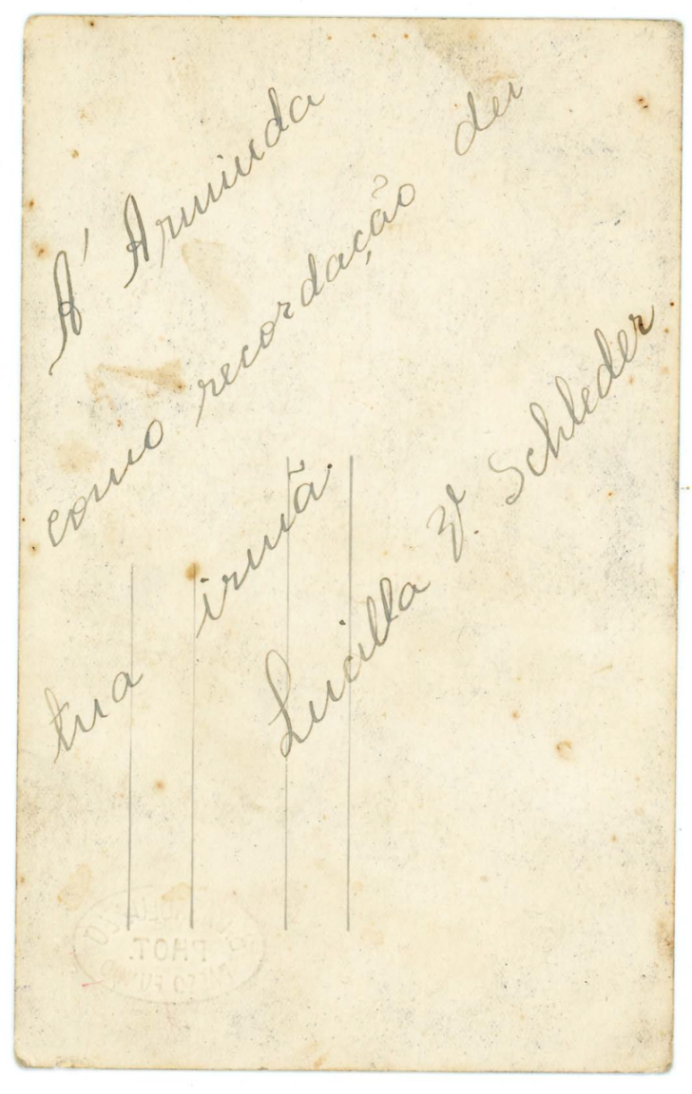 A' Arminda
como recordação da
tua irmã
Lucilla V. Schleder
PHOT.